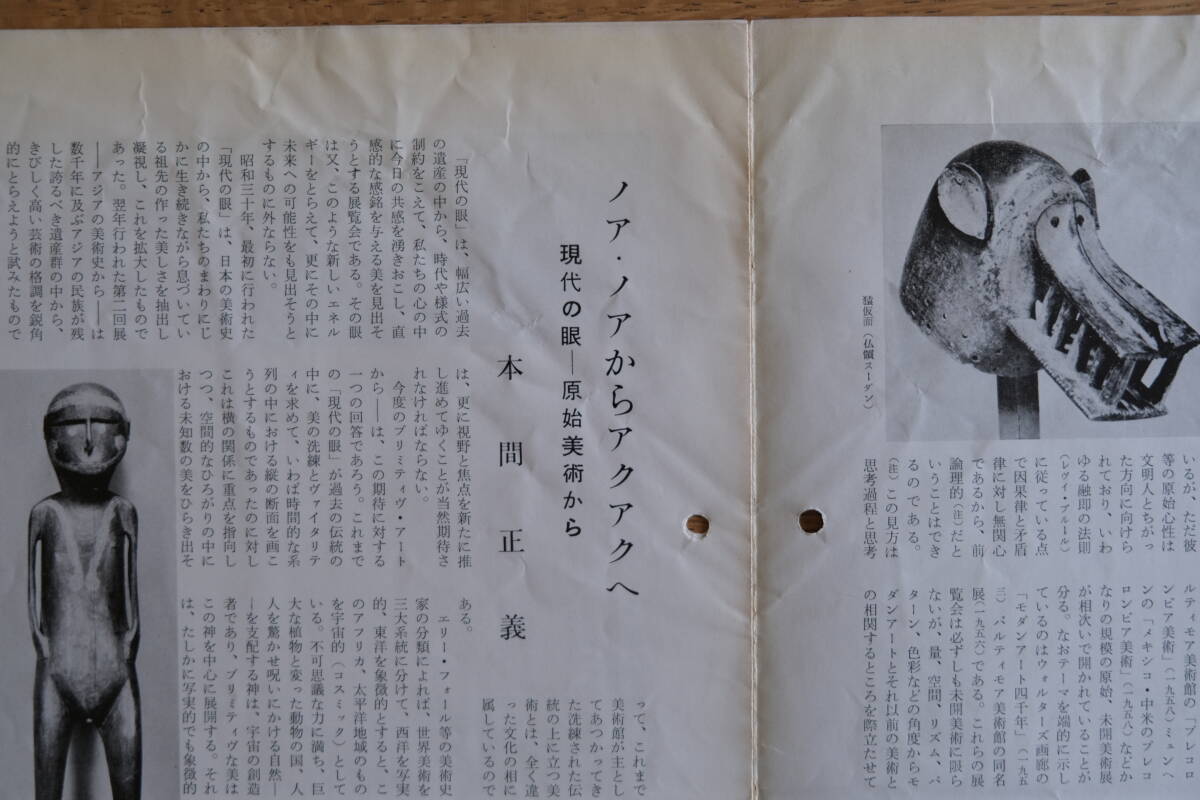 ノア・ノアからアクアクへ
現代の眼―原始美術から
本間正義
「現代の眼」は、幅広い過去
の遺産の中から、時代や様式の
制約をこえて、私たちの心の中
に今日の共感を湧きおこし、直
感的な感銘を与える美を見出そ
うとする展覧会である。その眼
は又、このような新しいエネル
ギーをとらえて、更にその中に
未来への可能性をも見出そうと
するものに外ならない。
昭和三十年、最初に行われた
「現代の眼」は、日本の美術史
の中から、私たちのまわりにじ
かに生き続きながら息づいてい
る祖先の作った美しさを抽出し
凝視し、これを拡大したもので
あった。翌年行われた第二回展
――アジアの美術史から――は
数千年に及ぶアジアの民族が残
した誇るべき遺産群の中から、
きびしく高い芸術の格調を鋭角
的にとらえようと試みたもので
は、更に視野と焦点を新たに推
し進めてゆくことが当然期待さ
れなければならない。
今度のプリミティヴ・アート
から――は、この期待に対する
一つの回答であろう。これまで
の「現代の眼」が過去の伝統の
中に、美の洗練とヴァイタリテ
ィを求めて、いわば時間的な系
列の中における縦の断面を画こ
うとするものであったのに対し
これは横の関係に重点を指向し
つつ、空間的なひろがりの中に
おける未知数の美をひらき出そ
って、これまで
美術館が主とし
てあつかってき
た洗練された伝
統の上に立つ美
術とは、全く違
った文化の相に
属しているので
ある。
エリー・フォール等の美術史
家の分類によれば、世界美術を
三大系統に分けて、西洋を写実
的、東洋を象徴的とすると、こ
のアフリカ、太平洋地域のもの
を宇宙的（コスミック）として
いる。不可思議な力に満ち、巨
大な植物と変った動物の国、人
人を驚かせ呪いにかける自然―
―を支配する神は、宇宙の創造
者であり、プリミティヴな美は
この神を中心に展開する。それ
は、たしかに写実的でも象徴的
猿仮面（仏領スーダン）
いるが、ただ彼
等の原始心性は
文明人とちがっ
た方向に向けら
れており、いわ
ゆる融即の法則
（レヴィ・ブルュル）
に従っている点
で因果律と矛盾
律に対し無関心
であるから、前
論理的（注）だと
いうことはでき
るのである。
（注）この見方は
思考過程と思考
ルティモア美術館の「プレコロ
ンビア美術」（一九五八）ミュンヘ
ンの「メキシコ・中米のプレコ
ロンビア美術」（一九五八）などか
なりの規模の原始、未開美術展
が相次いで開かれていることが
分る。なおテーマを端的に示し
ているのはウォルターズ画廊の
「モダンアート四千年」（一九五
三）バルティモア美術館の同名
展（一九五六）である。これらの展
覧会は必ずしも未開美術に限ら
ないが、量、空間、リズム、パ
ターン、色彩などの角度からモ
ダンアートとそれ以前の美術と
の相関するところを際立たせて